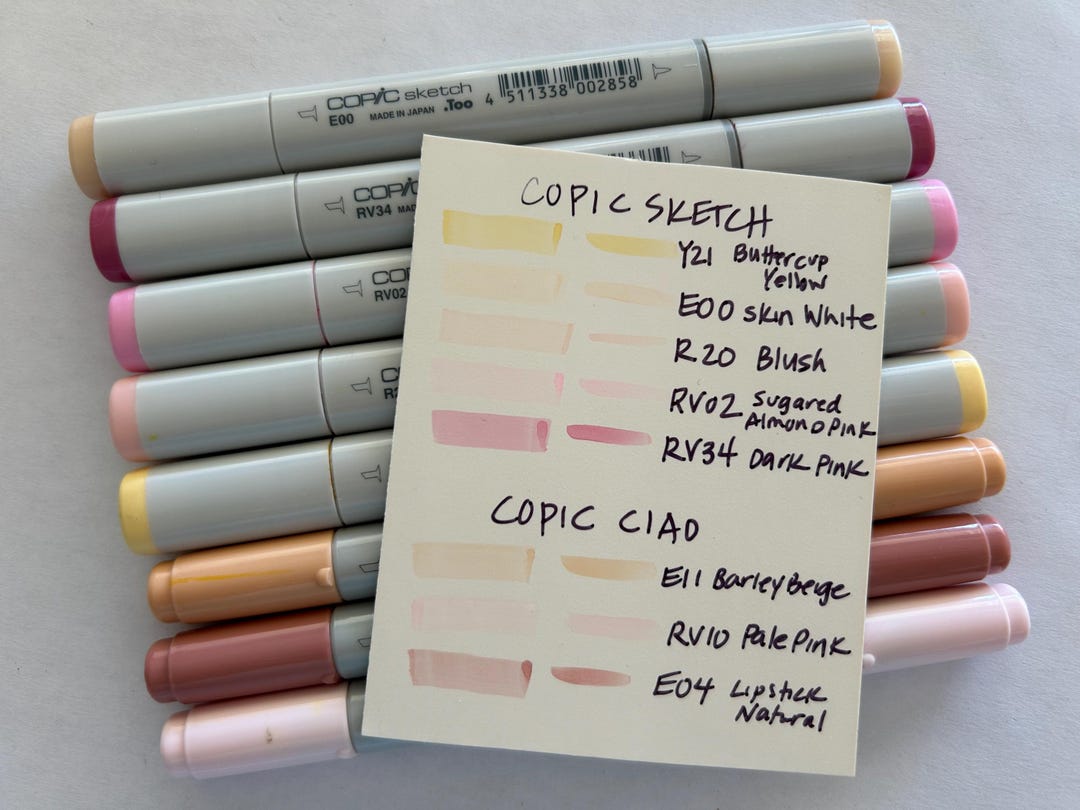 COPIC sketch
E00 MADE IN JAPAN .Too 4 511338 002858
COPIC
RV34 MA
COP
RV02
CO
R2
C
COPIC SKETCH
Y21 Buttercup
Yellow
E00 Skin White
R20 Blush
RV02 Sugared
Almond Pink
RV34 Dark Pink
COPIC CIAO
E11 Barley Beige
RV10 Pale Pink
E04 Lipstick
Natural